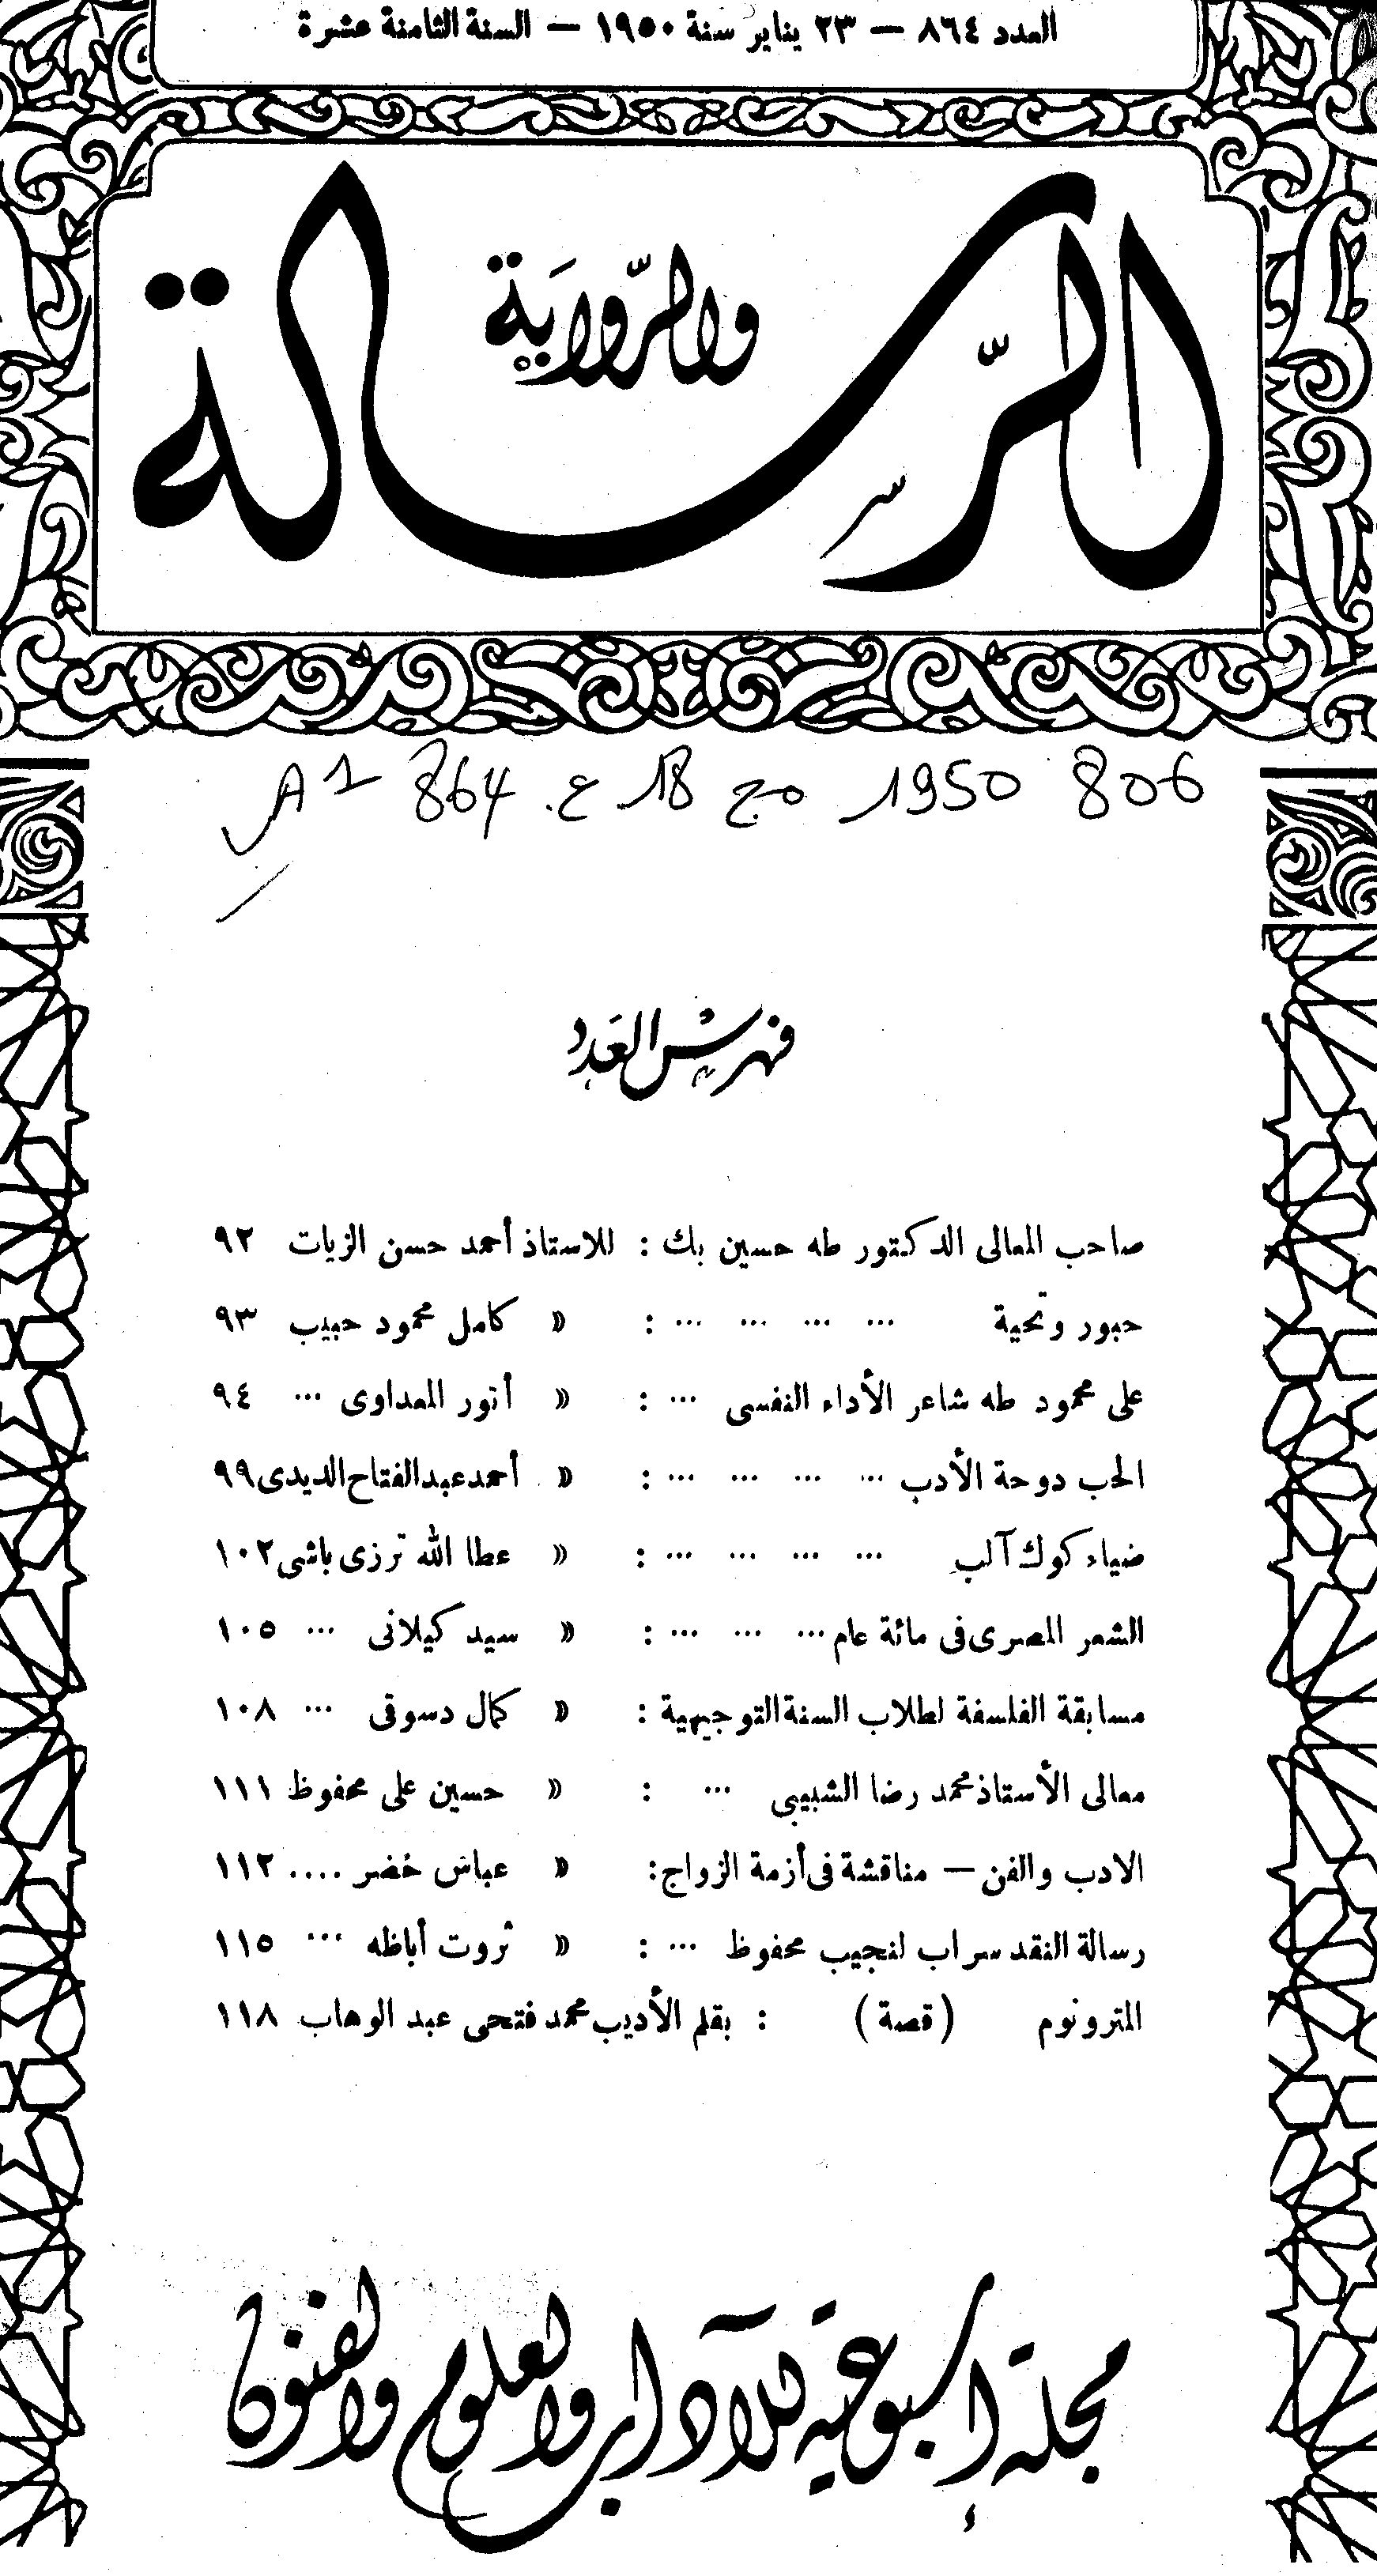 العدد ٨٦٤ — ٢٣ يناير سنة ١٩٥٠ — السنة الثامنة عشرة
الرسالة
والرواية
806 1950 مج 18 ع. 864 A1
فهرس العدد
صاحب المعالى الدكتور طه حسين بك : للاستاذ أحمد حسن الزيات ٩٢
حبور وتحية ... ... ... ... : » كامل محمود حبيب ٩٣
على محمود طه شاعر الأداء النفسى ... : » أنور المعداوى ... ٩٤
الحب دوحة الأدب ... ... ... ... : » أحمد عبد الفتاح الديدى ٩٩
ضياء كوك آلب ... ... ... ... : » عطا الله ترزى باشى ١٠٢
الشعر المصرى فى مائة عام ... ... ... : » سيد كيلانى ... ١٠٥
مسابقة الفلسفة لطلاب السنة التوجيهية : » كمال دسوقى ... ١٠٨
معالى الأستاذ محمد رضا الشبيبى ... : » حسين على محفوظ ١١١
الادب والفن — مناقشة فى أزمة الزواج : » عباس خضر .... ١١٢
رسالة النقد سراب لنجيب محفوظ ... : » ثروت أباظه ... ١١٥
المترونوم (قصة) : بقلم الأديب محمد فتحى عبد الوهاب ١١٨
مجلة إسبوعية للآداب والعلوم والفنون